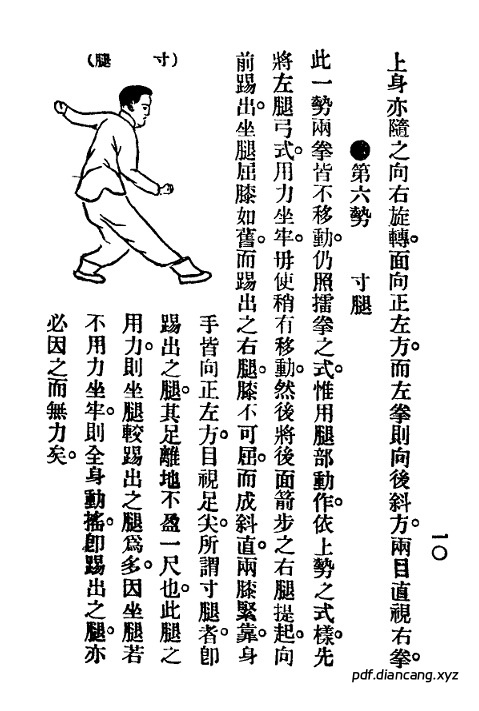 一〇
上身亦隨之向右旋轉。面向正左方。而左拳則向後斜方。兩目直視右拳。
●第六勢　寸腿
此一勢兩拳皆不移動。仍照擂拳之式。惟用腿部動作。依上勢之式樣。先
將左腿弓式。用力坐牢。毋使稍有移動。然後將後面箭步之右腿提起。向
前踢出。坐腿屈膝如舊。而踢出之右腿。膝不可屈。而成斜直。兩膝緊靠。身
手皆向正左方。目視足尖。所謂寸腿者。卽
踢出之腿。其足離地不盈一尺也。此腿之
用力。則坐腿較踢出之腿爲多。因坐腿若
不用力坐牢。則全身動搖。卽踢出之腿。亦
必因之而無力矣。
（寸腿）
pdf.diancang.xyz